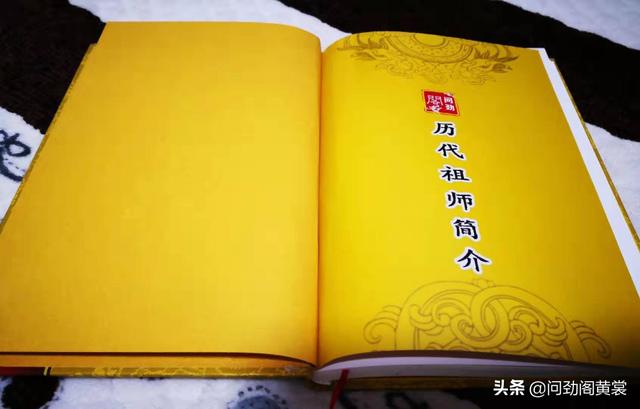 问劲
历代祖师简介
头条 @问劲阁黄裳